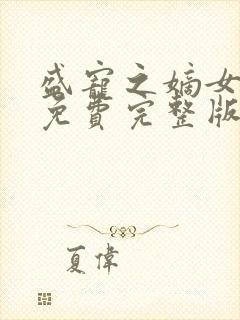 盛寵之嫡女
免費完整版
夏偉